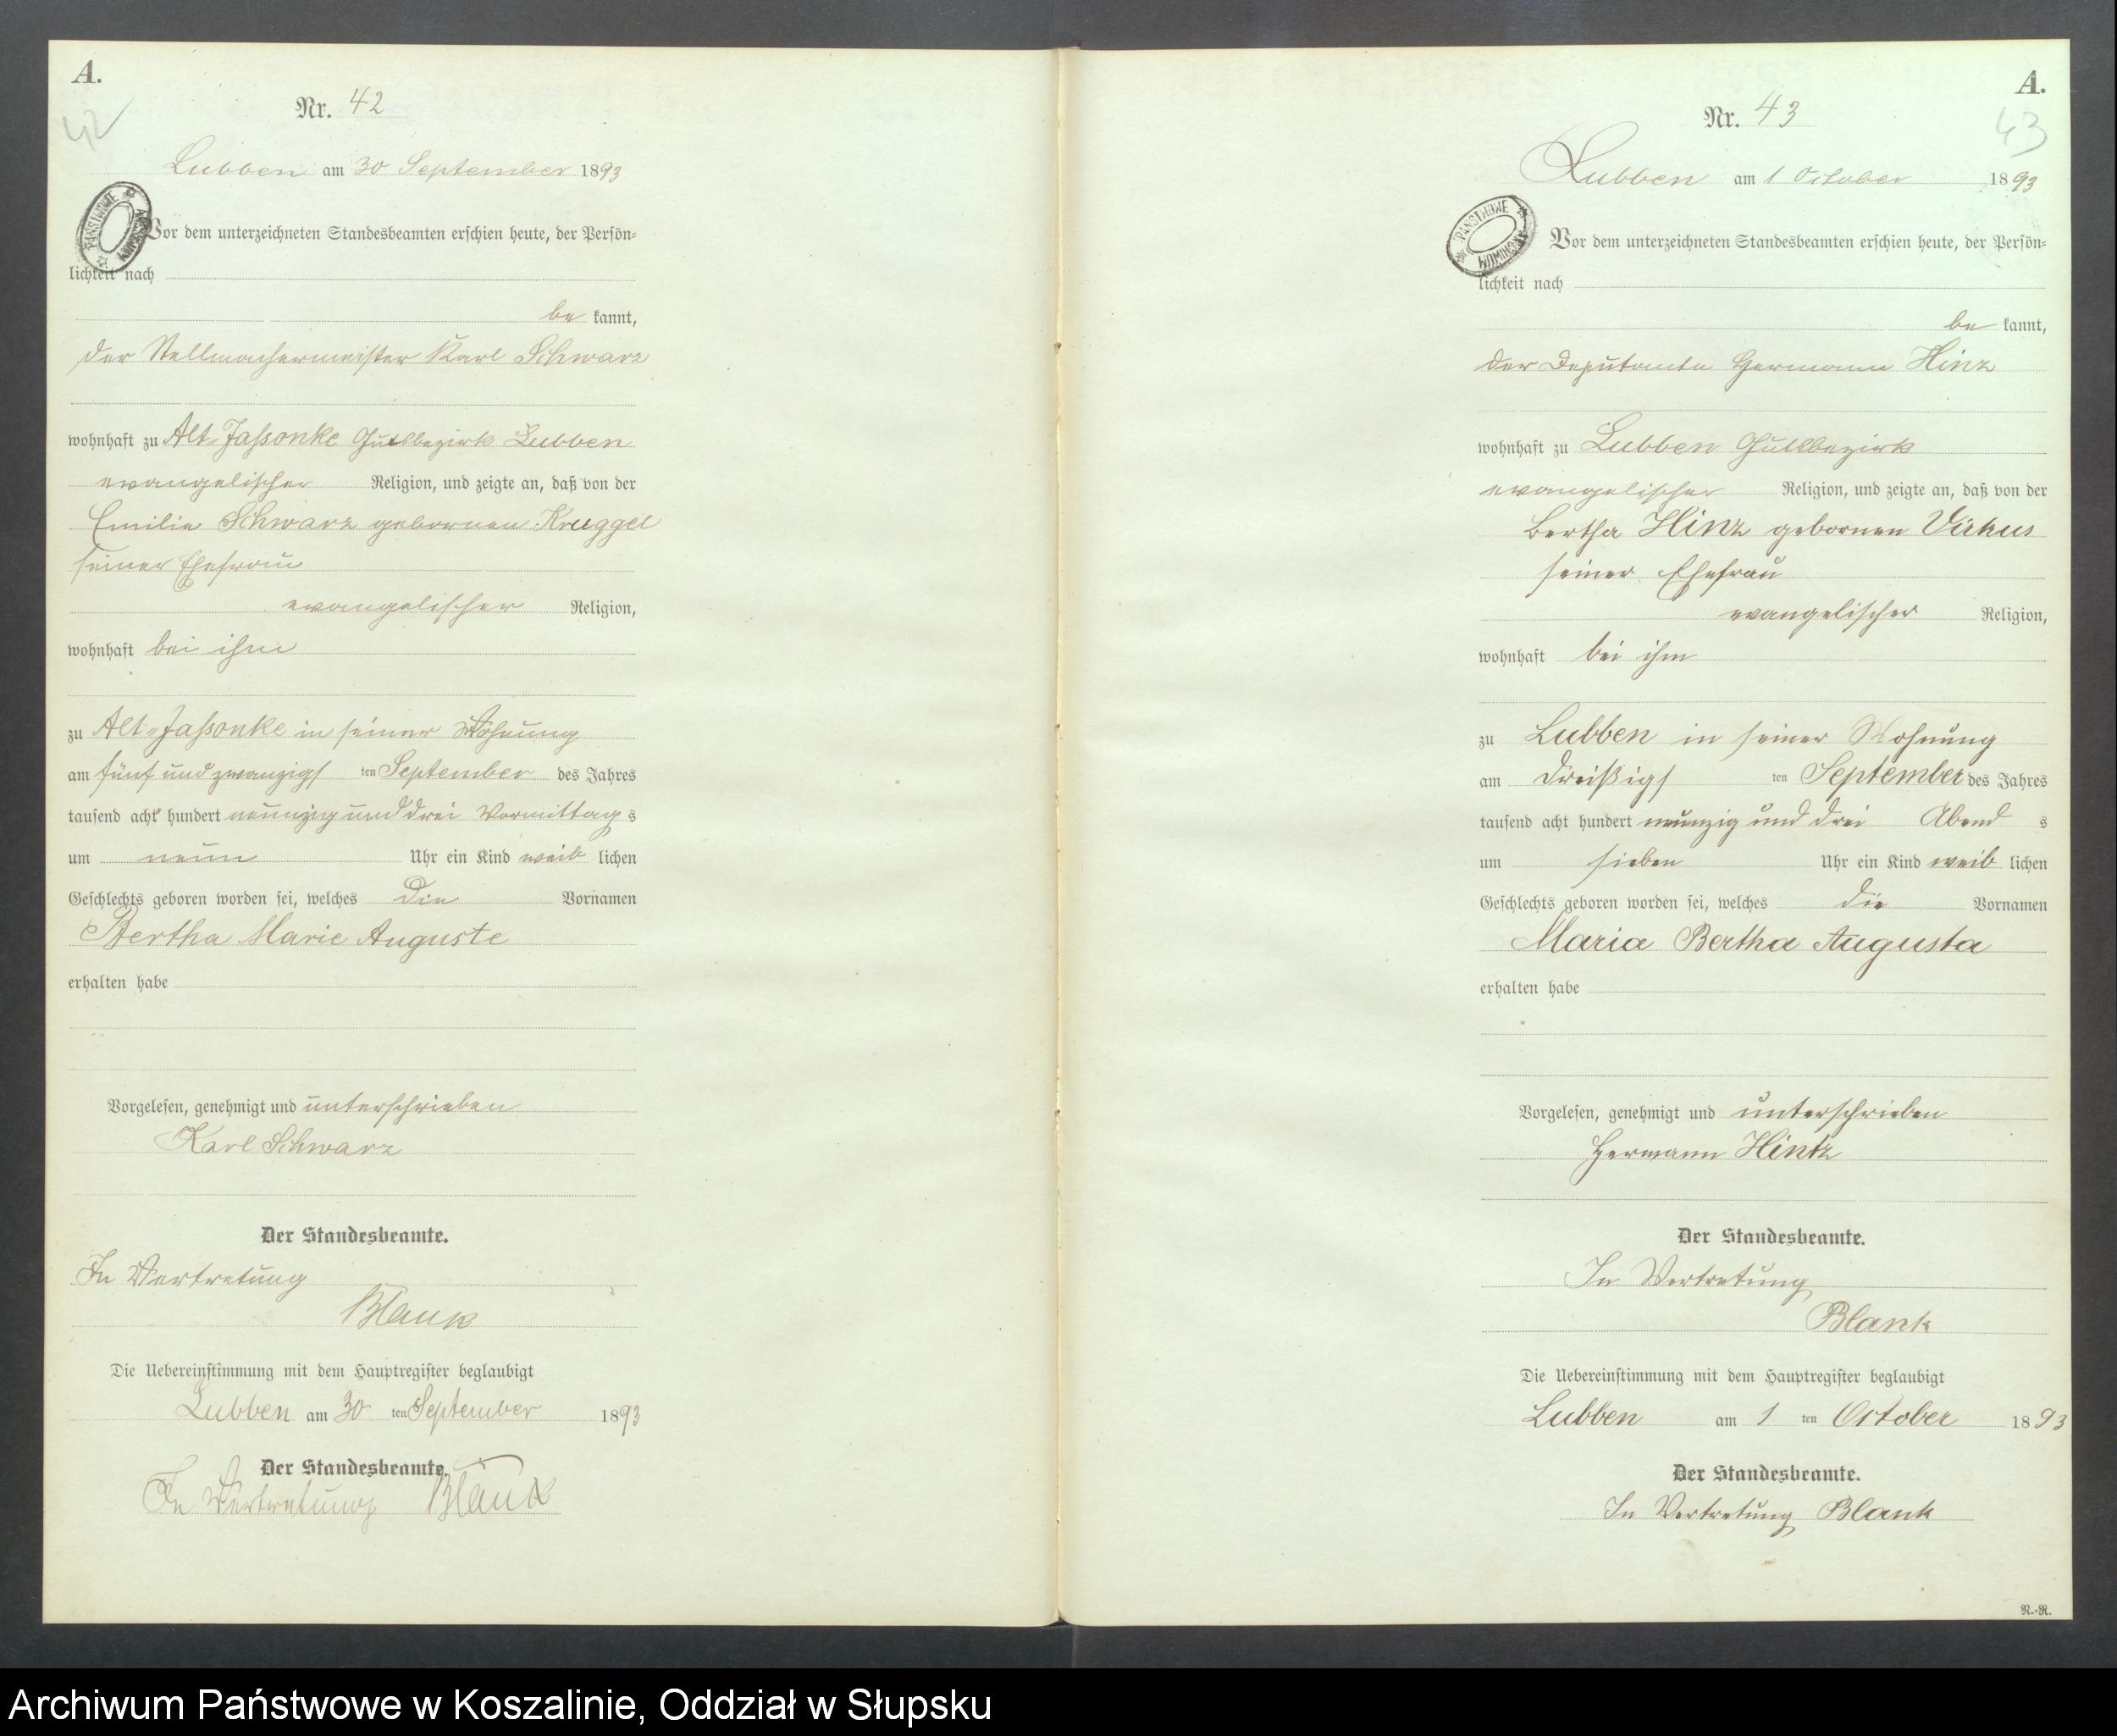 A.
Nr. 42
42
Lubben am 30 September 1893
PAŃSTWOWE ARCHIWUM
Vor dem unterzeichneten Standesbeamten erschien heute, der Persön=
lichkeit nach
be kannt,
der Stellmachermeister Karl Schwarz
wohnhaft zu Alt-Jassonke Gutsbezirk Lubben
evangelischer Religion, und zeigte an, daß von der
Emilie Schwarz gebornen Kruggel
seiner Ehefrau
evangelischer Religion,
wohnhaft bei ihm
zu Alt-Jassonke in seiner Wohnung
am fünf und zwanzigs ten September des Jahres
tausend acht hundert neunzig und drei Vormittag s
um neun Uhr ein Kind weib lichen
Geschlechts geboren worden sei, welches die Vornamen
Bertha Marie Auguste
erhalten habe
Vorgelesen, genehmigt und unterschrieben
Karl Schwarz
Der Standesbeamte.
In Vertretung
Blank
Die Uebereinstimmung mit dem Hauptregister beglaubigt
Lubben am 30 ten September 1893
Der Standesbeamte.
In Vertretung Blank
A.
Nr. 43
43
Lubben am 1 October 1893
PAŃSTWOWE ARCHIWUM
Vor dem unterzeichneten Standesbeamten erschien heute, der Persön=
lichkeit nach
be kannt,
der Deputante Hermann Hinz
wohnhaft zu Lubben Gutsbezirk
evangelischer Religion, und zeigte an, daß von der
Bertha Hinz gebornen Virkus
seiner Ehefrau
evangelischer Religion,
wohnhaft bei ihm
zu Lubben in seiner Wohnung
am dreißigs ten September des Jahres
tausend acht hundert neunzig und drei Abend s
um sieben Uhr ein Kind weib lichen
Geschlechts geboren worden sei, welches die Vornamen
Maria Bertha Augusta
erhalten habe
Vorgelesen, genehmigt und unterschrieben
Hermann Hintz
Der Standesbeamte.
In Vertretung
Blank
Die Uebereinstimmung mit dem Hauptregister beglaubigt
Lubben am 1 ten October 1893
Der Standesbeamte.
In Vertretung Blank
R.-R.
Archiwum Państwowe w Koszalinie, Oddział w Słupsku